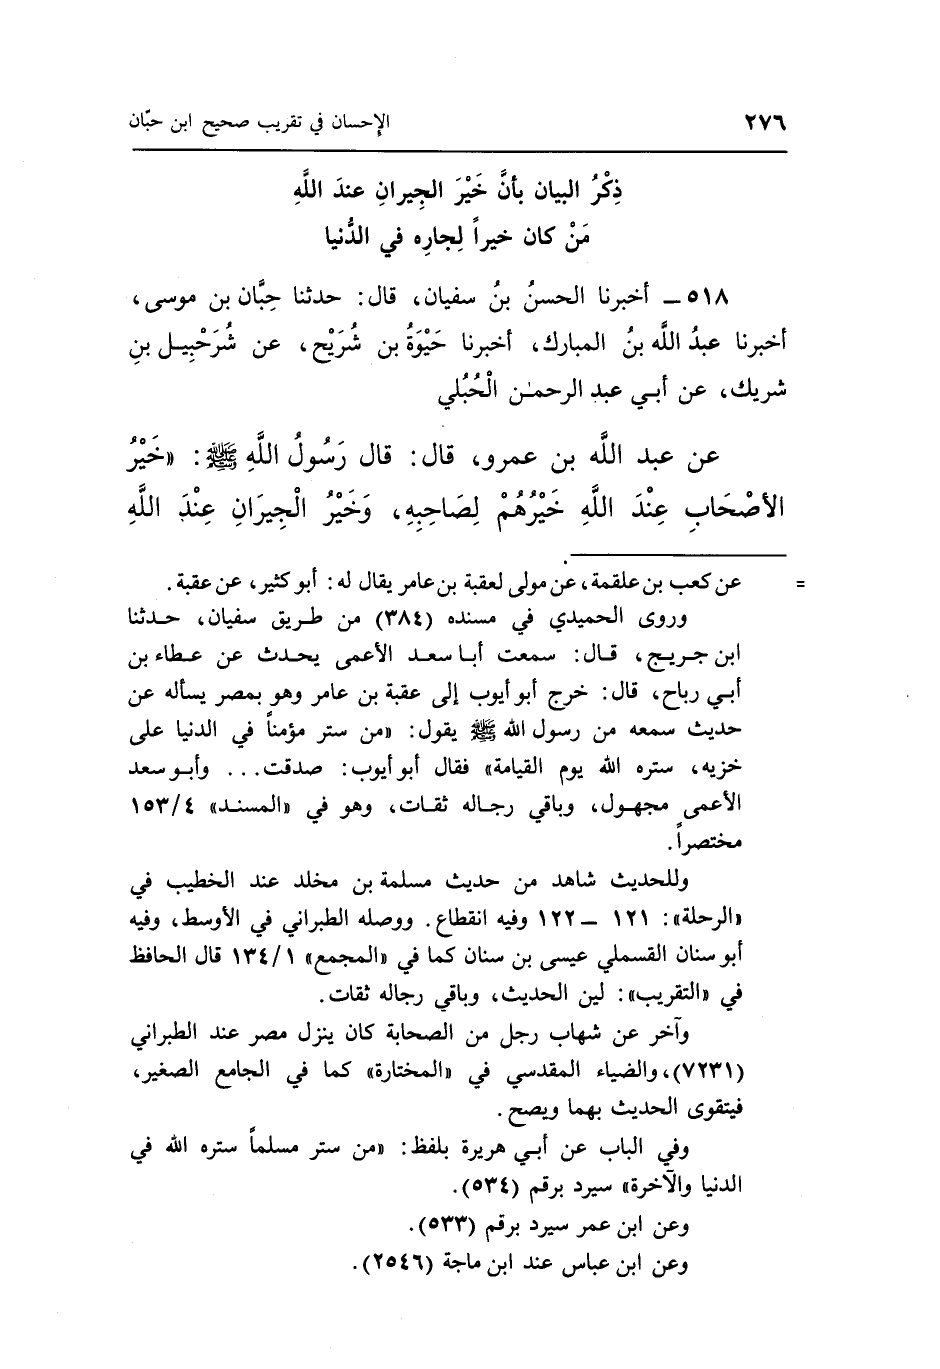 ٢٧٦ الإحسان في تقريب صحيح ابن حبّان
ذِكْرُ البيان بأنَّ خَيْرَ الجِيرانِ عندَ اللَّهِ
مَنْ كان خيراً لِجارِه في الدُّنيا
٥١٨ ـ أخبرنا الحسنُ بنُ سفيان، قال: حدثنا حِبَّان بن موسى،
أخبرنا عبدُ اللَّه بنُ المبارك، أخبرنا حَيْوَةُ بن شُرَيْح، عن شُرَحْبِيل بنِ
شريك، عن أبي عبد الرحمٰن الْحُبُلي
عن عبد اللَّه بن عمرو، قال: قال رَسُولُ اللَّهِ ﷺ: «خَيْرُ
الأَصْحَابِ عِنْدَ اللَّهِ خَيْرُهُمْ لِصَاحِبِهِ، وَخَيْرُ الْجِيرَانِ عِنْدَ اللَّهِ
= عن كعب بن علقمة، عن مولى لعقبة بن عامر يقال له: أبو كثير، عن عقبة.
وروى الحميدي في مسنده (٣٨٤) من طريق سفيان، حدثنا
ابن جريج، قال: سمعت أبا سعد الأعمى يحدث عن عطاء بن
أبي رباح، قال: خرج أبو أيوب إلى عقبة بن عامر وهو بمصر يسأله عن
حديث سمعه من رسول الله ﷺ يقول: «من ستر مؤمناً في الدنيا على
خزيه، ستره الله يوم القيامة» فقال أبو أيوب: صدقت... وأبو سعد
الأعمى مجهول، وباقي رجاله ثقات، وهو في «المسند» ١٥٣/٤
مختصراً.
وللحديث شاهد من حديث مسلمة بن مخلد عند الخطيب في
«الرحلة»: ١٢١ ـ ١٢٢ وفيه انقطاع. ووصله الطبراني في الأوسط، وفيه
أبو سنان القسملي عيسى بن سنان كما في «المجمع» ١٣٤/١ قال الحافظ
في «التقريب»: لين الحديث، وباقي رجاله ثقات.
وآخر عن شهاب رجل من الصحابة كان ينزل مصر عند الطبراني
(٧٢٣١)، والضياء المقدسي في «المختارة» كما في الجامع الصغير،
فيتقوى الحديث بهما ويصح.
وفي الباب عن أبي هريرة بلفظ: «من ستر مسلماً ستره الله في
الدنيا والآخرة» سيرد برقم (٥٣٤).
وعن ابن عمر سيرد برقم (٥٣٣).
وعن ابن عباس عند ابن ماجة (٢٥٤٦).